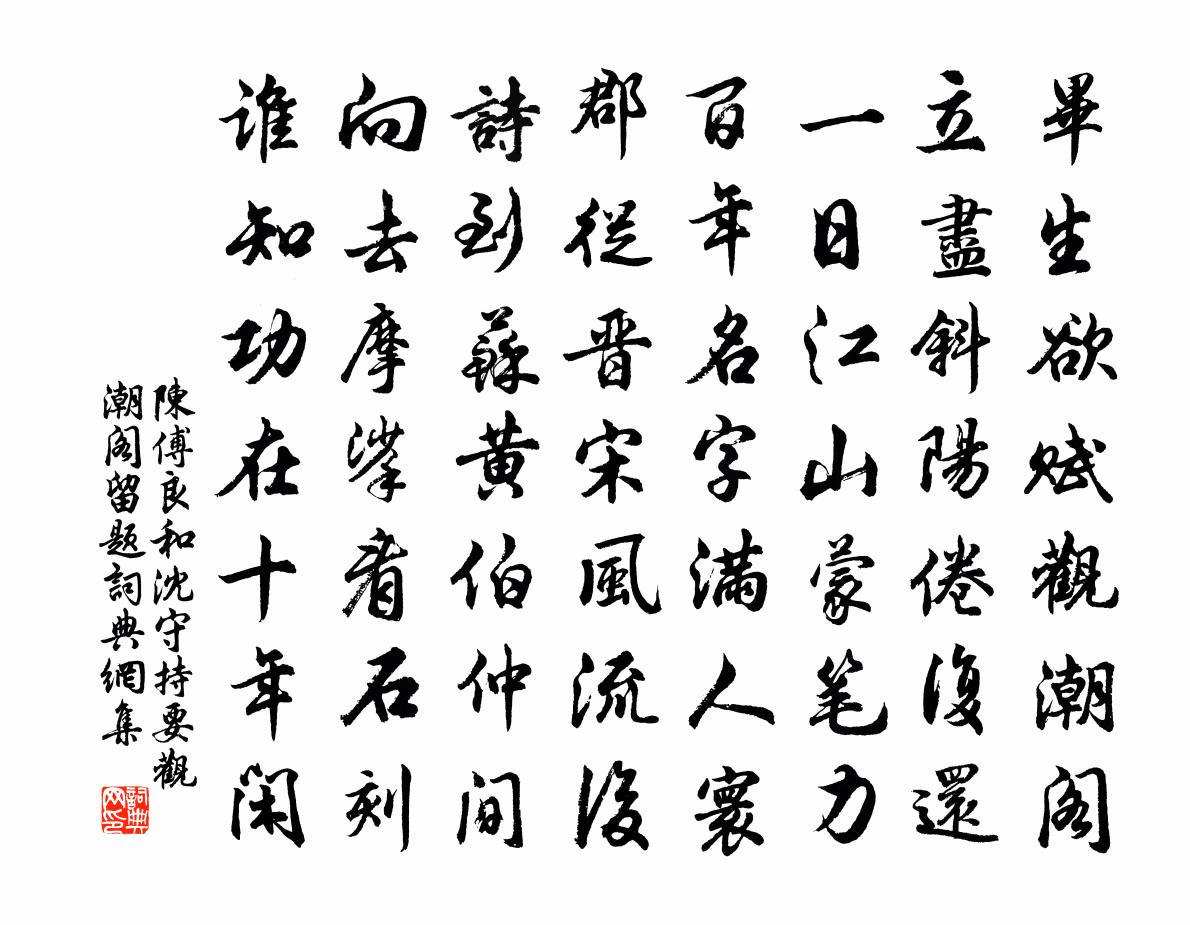 畢生欲賦觀潮閣
立盡斜陽倦復還
一日江山蒙笔力
百年名字滿人寰
郡從晉宋風流後
詩到蘇黃伯仲間
向去摩挲看石刻
誰知功在十年閑
陳傅良和沈守持要觀
潮閣留題詞典網集
詞典
网印